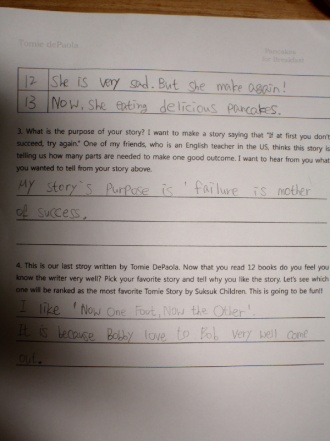 Tomie dePaola
Pancakes
for Breakfast
12 She is very sad. But she make again!
13 Now, She eating delicious pancakes.
3. What is the purpose of your story? I want to make a story saying that "If at first you don't
succeed, try again." One of my friends, who is an English teacher in the US, thinks this story is
telling us how many parts are needed to make one good outcome. I want to hear from you what
you wanted to tell from your story above.
My story's purpose is 'failure is mother
of success.
4. This is our last stroy written by Tomie DePaola. Now that you read 12 books do you feel you
know the writer very well? Pick your favorite story and tell why you like the story. Let's see which
one will be ranked as the most favorite Tomie Story by Suksuk Children. This is going to be fun!!
I like 'Now One Foot, Now the Other'.
It is because Bobby love to Bob very well come
out.